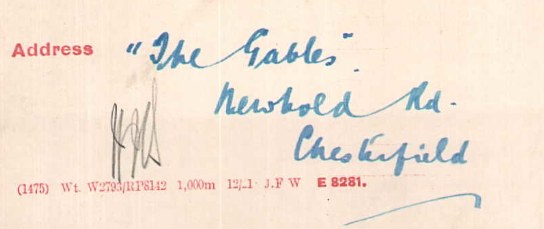 Address "The Gables".
Newbold Rd.
Chesterfield
(1475) Wt. W2793/RP8142 1,000m 12/21 J.F W E 8281.